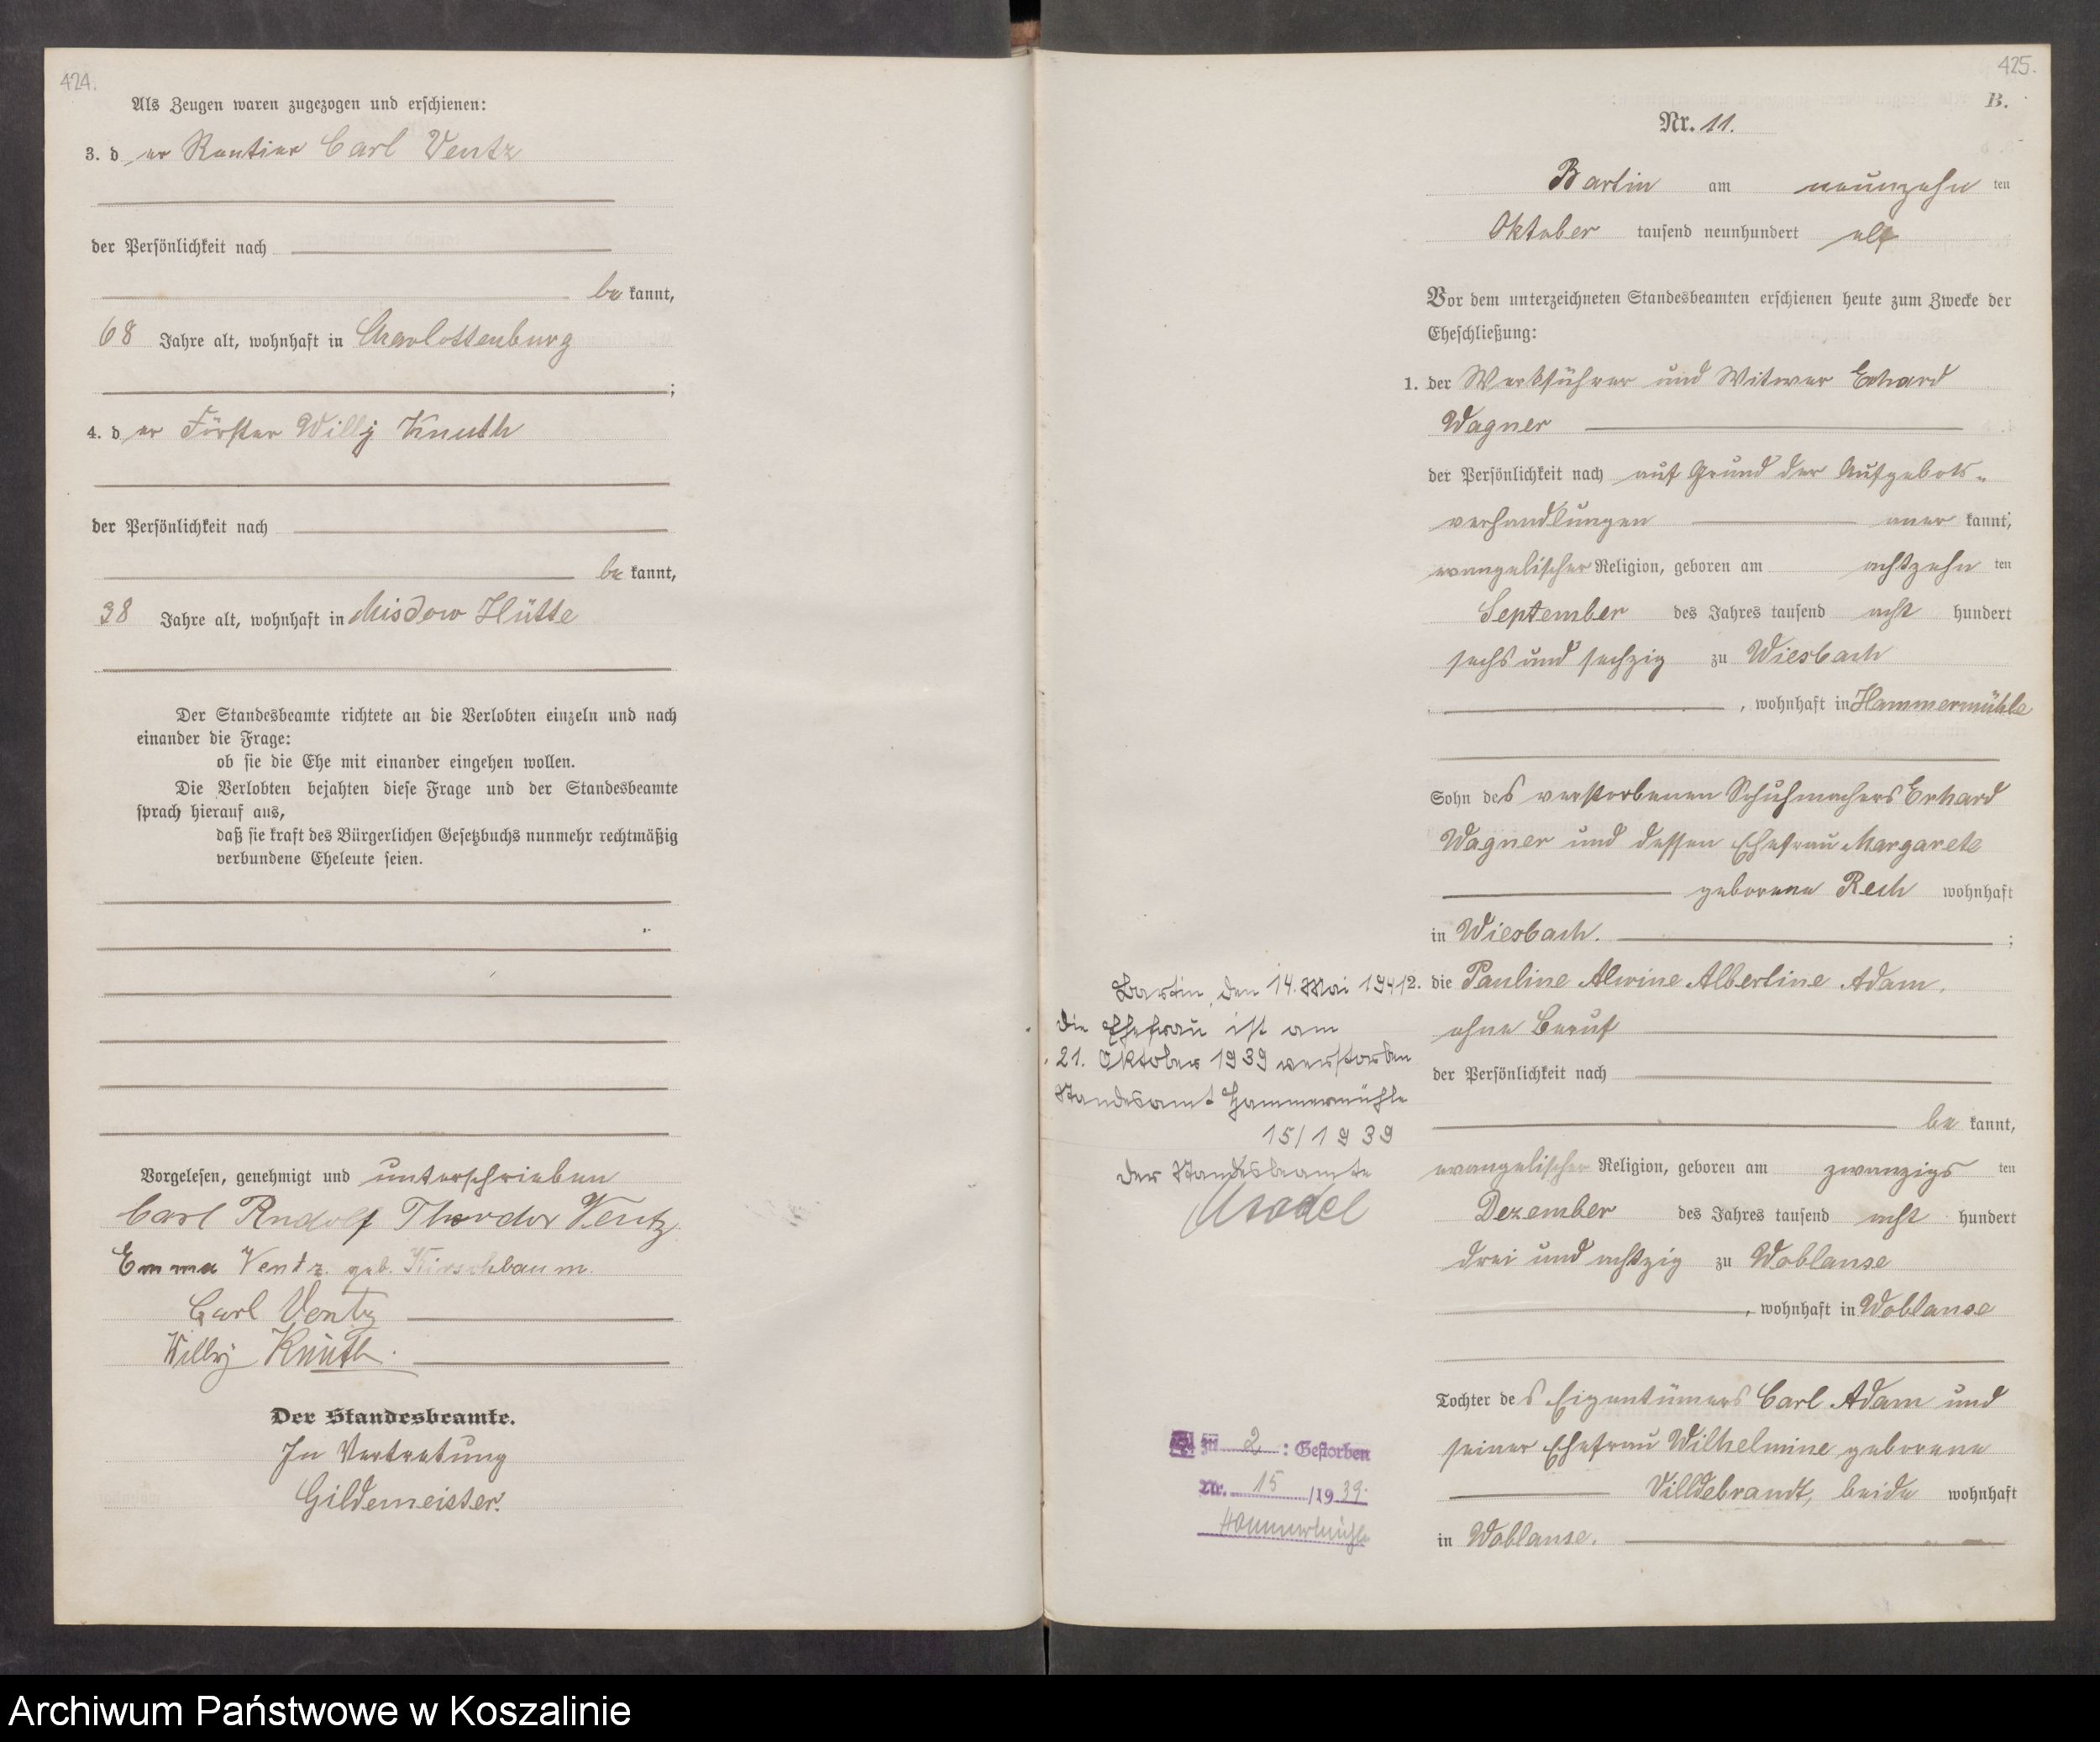 424.
Als Zeugen waren zugezogen und erschienen:
3. der Rentier Carl Ventz
der Persönlichkeit nach
bekannt,
68 Jahre alt, wohnhaft in Charlottenburg
;
4. der Förster Willy Knuth
der Persönlichkeit nach
bekannt,
38 Jahre alt, wohnhaft in Misdow Hütte
Der Standesbeamte richtete an die Verlobten einzeln und nach
einander die Frage:
ob sie die Ehe mit einander eingehen wollen.
Die Verlobten bejahten diese Frage und der Standesbeamte
sprach hierauf aus,
daß sie kraft des Bürgerlichen Gesetzbuchs nunmehr rechtmäßig
verbundene Eheleute seien.
Vorgelesen, genehmigt und unterschrieben
Carl Rudolf Theodor Ventz
Emma Ventz geb. Kirschbaum.
Carl Ventz
Willy Knuth.
Der Standesbeamte.
In Vertretung
Gildemeister.
425.
B.
Nr. 11.
Bartin am neunzehnten
Oktober tausend neunhundert elf
Vor dem unterzeichneten Standesbeamten erschienen heute zum Zwecke der
Eheschließung:
1. der Werkführer und Witwer Erhard
Wagner
der Persönlichkeit nach auf Grund der Aufgebots-
verhandlungen anerkannt,
evangelischer Religion, geboren am achtzehnten
September des Jahres tausend acht hundert
sechs und sechzig zu Wiesbach
, wohnhaft in Hammermühle
Sohn des verstorbenen Schuhmachers Erhard
Wagner und dessen Ehefrau Margarete
geborene Rech wohnhaft
in Wiesbach. ;
2. die Pauline Alwine Albertine Adam,
ohne Beruf
der Persönlichkeit nach
bekannt,
evangelischer Religion, geboren am zwanzigsten
Dezember des Jahres tausend acht hundert
drei und achtzig zu Woblanse
, wohnhaft in Woblanse
Tochter des Eigentümers Carl Adam und
seiner Ehefrau Wilhelmine geborene
Villdebrandt, beide wohnhaft
in Woblanse.
Bartin, den 14. Mai 1941
Die Ehefrau ist am
21. Oktober 1939 verstorben
Standesamt Hammermühle
15/1939
Der Standesbeamte
zu 2 : Gestorben
Nr. 15 /1939.
Hammermühle
Archiwum Państwowe w Koszalinie